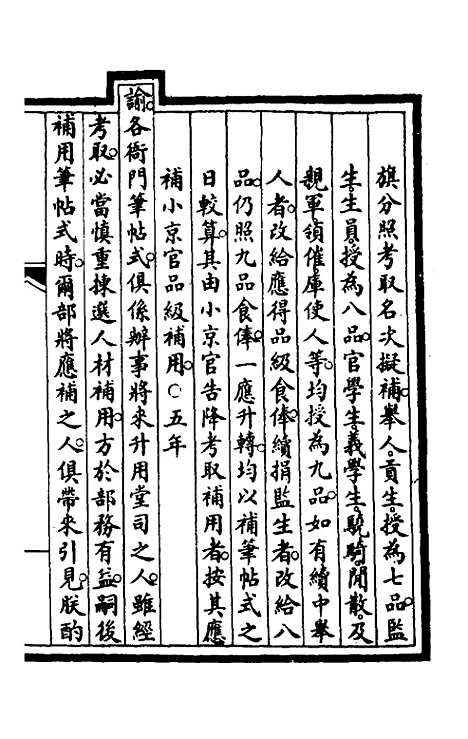 旗分照考取名次擬補。舉人。貢生。授為七品。監
生。生員。授為八品。官學生。義學生。驍騎。閒散。及
親軍。領催。庫使人等。均授為九品。如有續中舉
人者。改給應得品級食俸。續捐監生者。改給八
品。仍照九品食俸。一應升轉。均以補筆帖式之
日較算。其由小京官告降考取補用者。按其應
補小京官品級補用。○五年
諭。各衙門筆帖式。俱係辦事將來升用堂司之人。雖經
考取。必當慎重揀選人材補用。方於部務有益。嗣後
補用筆帖式時。爾部將應補之人。俱帶來引見。朕酌